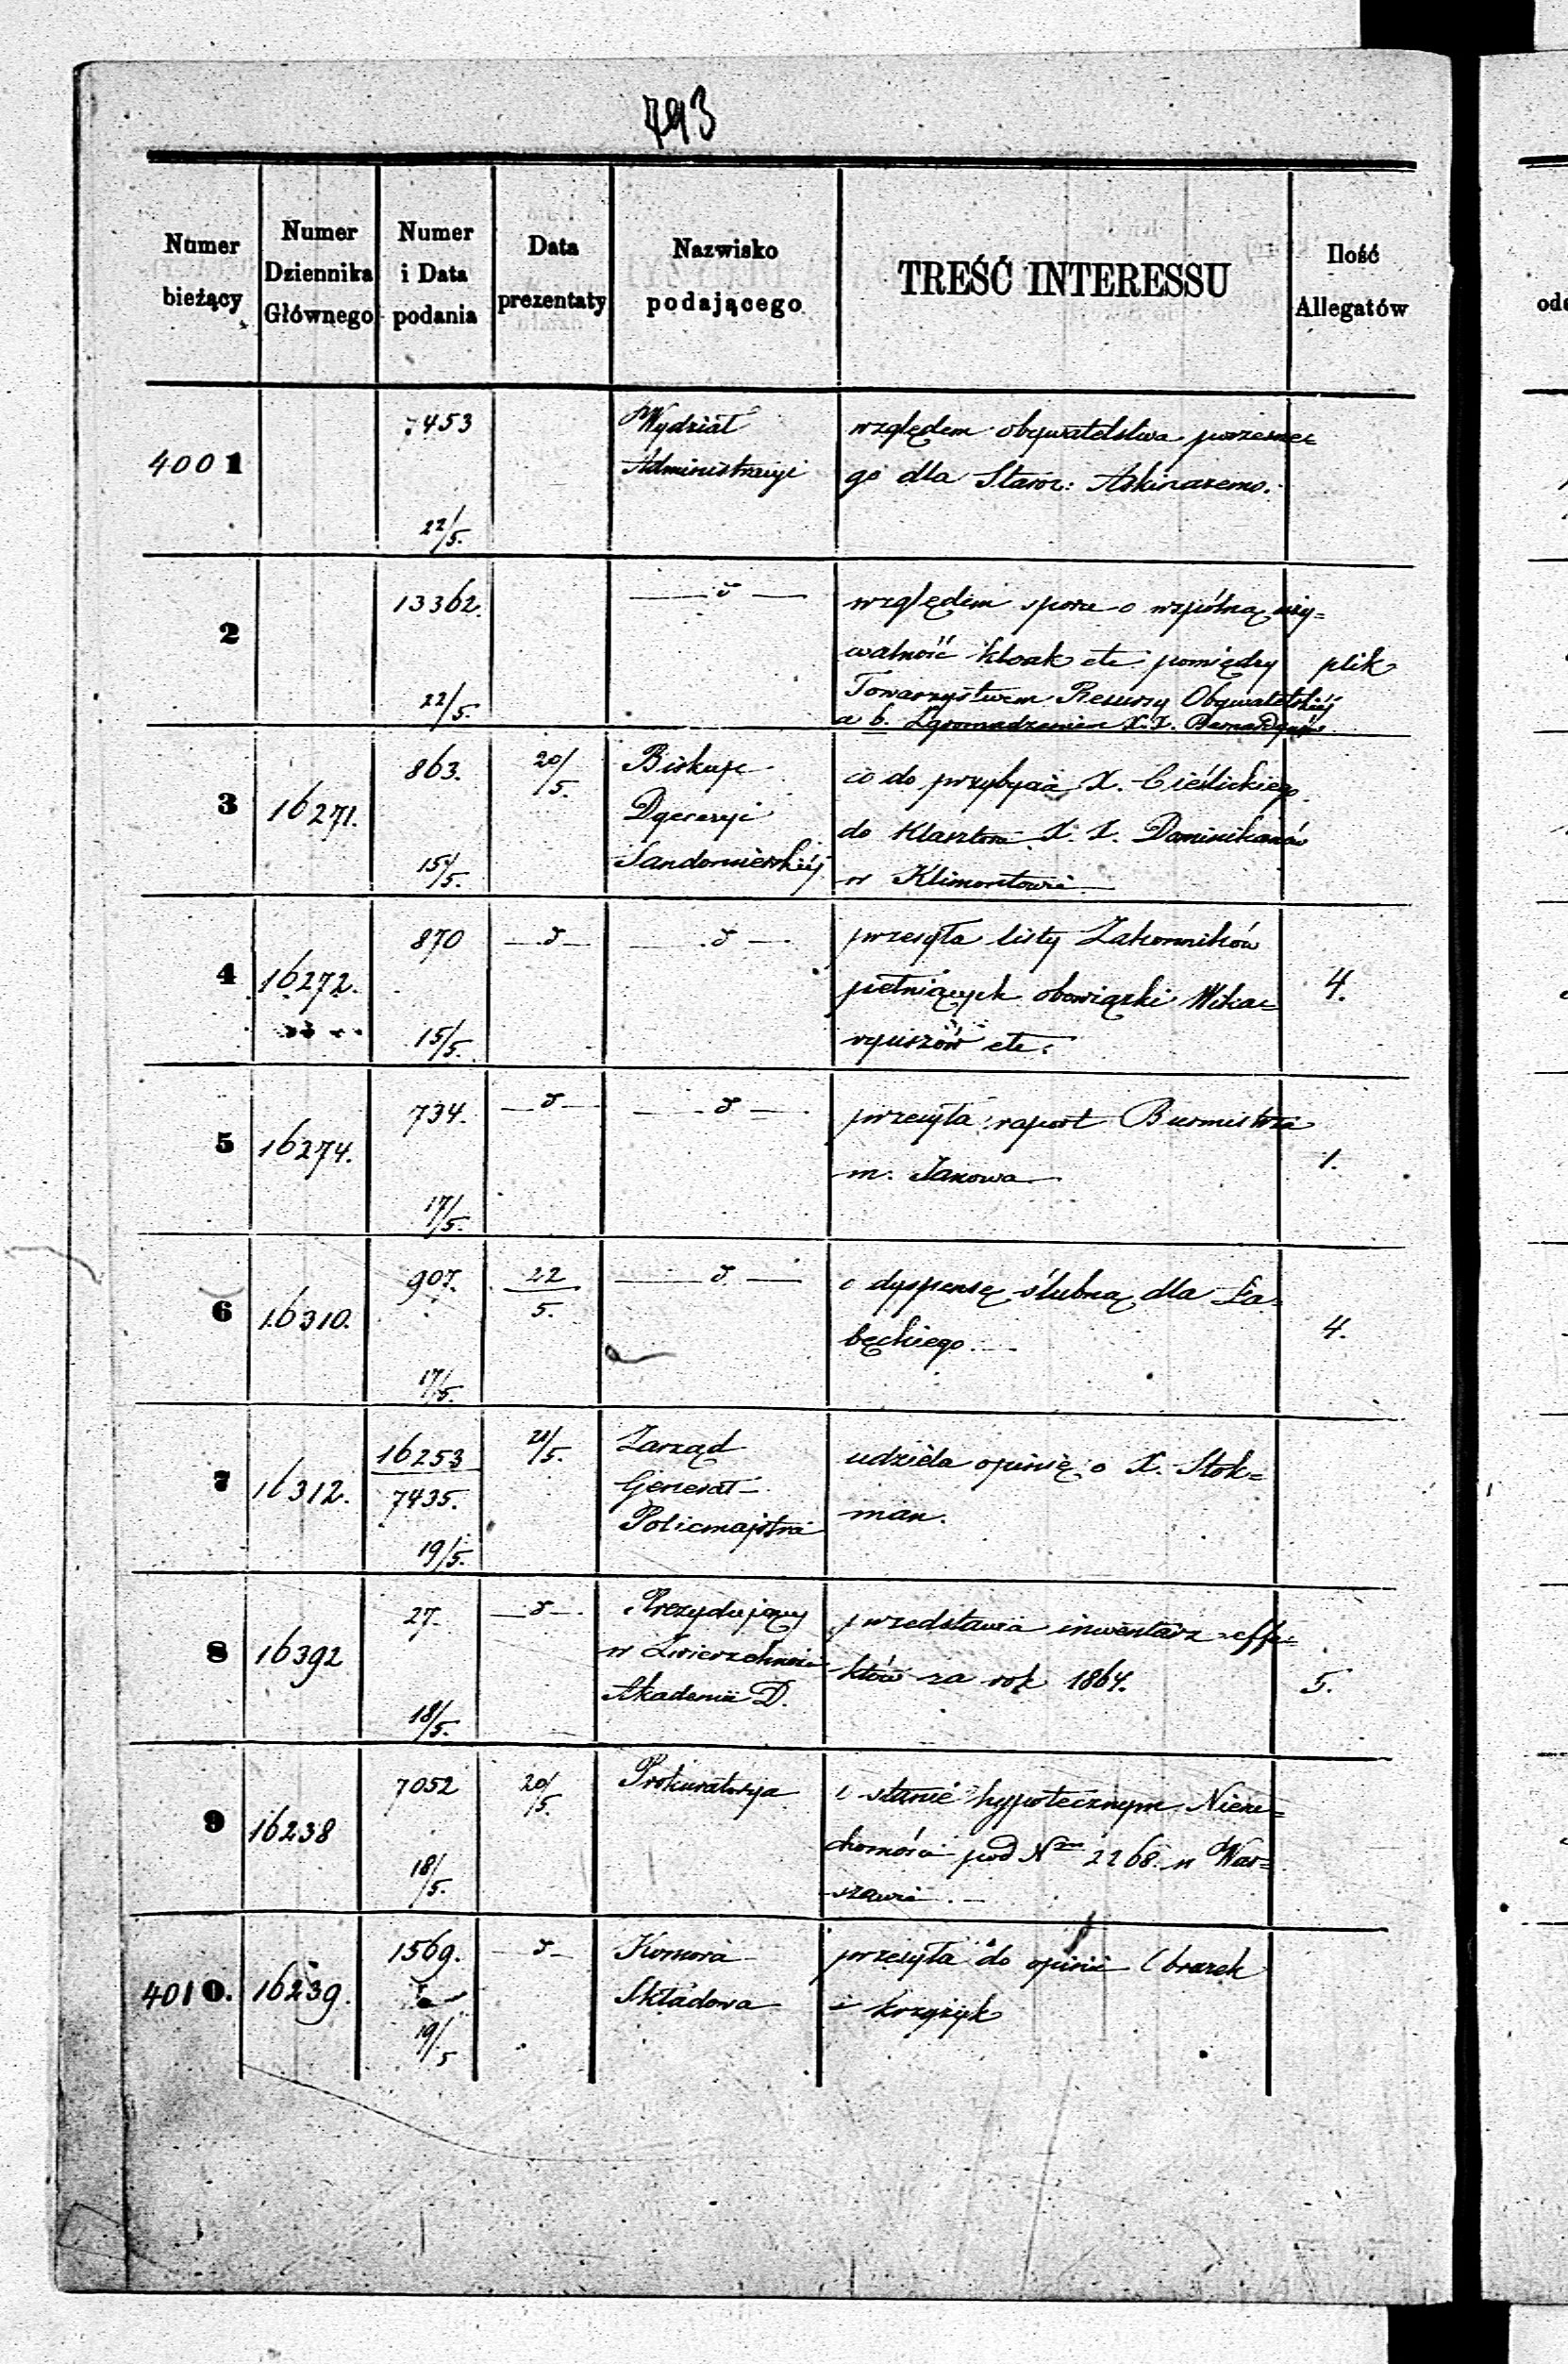 793
Numer bieżący
Numer Dziennika Głównego
Numer i Data podania
Data prezentaty
Nazwisko podającego
TREŚĆ INTERESSU
Ilość Allegatów
4001
7453
22/5.
Wydział
Administracyi
względem obywatelstwa
go dla Staroz:
2
13362.
22/5.
— d —
względem sporu o wspólną uży=
walność kloak etc pomiędzy
Towarzystwem Resursy Obywatelskiéj
a b. Zgromadzeniem X.X. Bernardynów
plik
3
16271.
863.
15/5.
20/5.
Biskup
Dyecezyi
Sandomierskiéj
co do przybycia X. Cieślickiego
do Klasztoru X. X. Dominikanów
w Klimontowie
4
16272.
870
15/5.
— d —
— d —
przesyła listy Zakonników
pełniących obowiązki Wikar=
yuszów etc.
4.
5
16274.
734.
17/5.
— d —
— d —
przesyła raport Burmistrza
m. Janowa
1.
6
16310.
907.
17/5.
22
5.
— d —
o dyspensę ślubną dla Ła=
będkiego.
4.
7
16312.
16253
7435.
19/5.
21/5.
Zarząd
Generał-
Policmajstra
udziela opinię o X. Stok=
man.
8
16392
27.
18/5.
— d —
Prezydujący
w Zwierzchności
Akademii D.
przedstawia inwentarz effe=
któw za rok 1864.
5.
9
16238
7052
18/5.
20/5.
Prokuratorya
o stanie hypotecznym Nieru=
chomości pod Nrm 2268. w War=
szawie.
4010.
16239.
1569.
19/5
— d —
Komora
Składowa
przesyła do opinii Obrazek
i krzyżyk